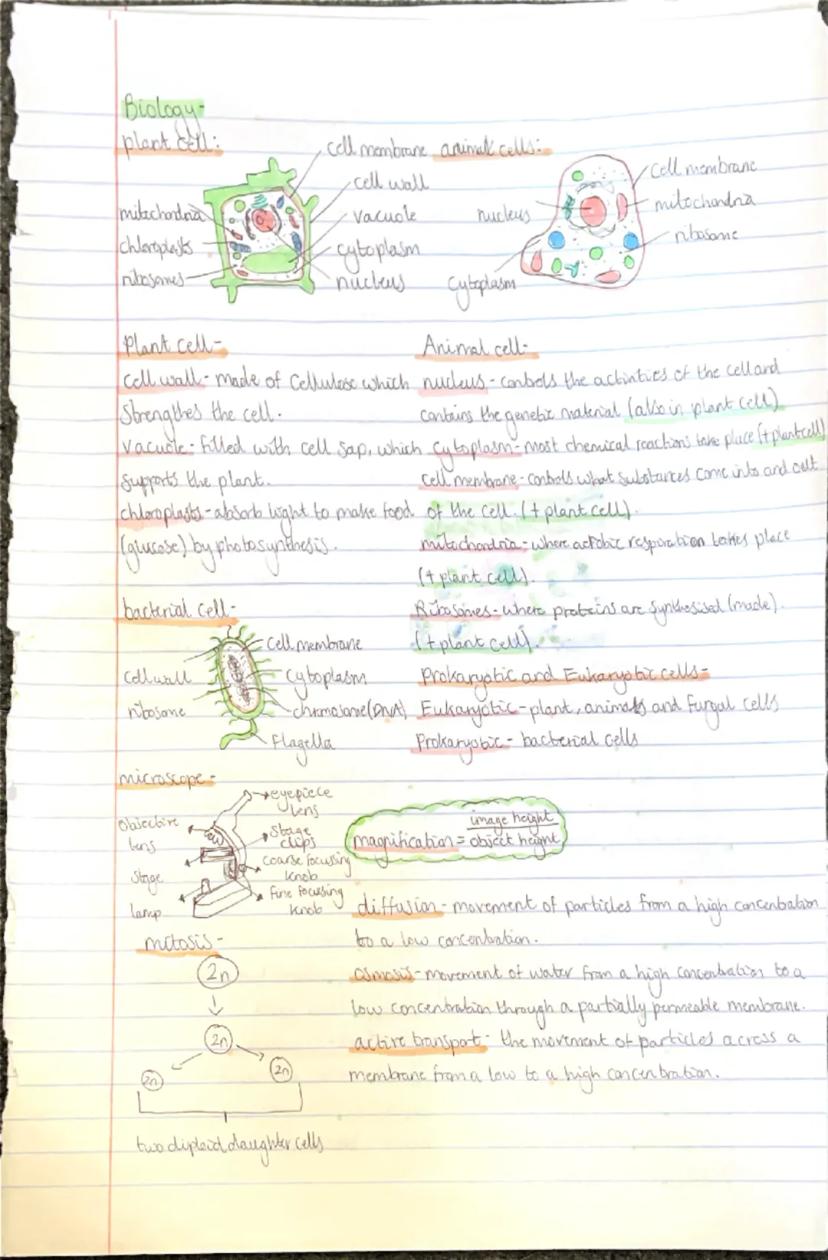 Biology-
plant cell:
cell membrane
cell wall
vacuole
cytoplasm
nucleus
mitochondria
chloroplasts
ribosomes
animal cells:
cell membrane
mitochondria
ribosome
nucleus
cytoplasm
Plant cell-
cell wall- made of cellulose which
strengthes the cell.
vacuole- filled with cell sap, which
supports the plant.
chloroplasts- absorb light to make food
(glucose) by photosynthesis.
Animal cell-
nucleus- controls the activities of the cell and
contains the genetic material (also in plant cell)
cytoplasm- most chemical reactions take place (+plant cell)
cell membrane- controls what substances come into and out
of the cell (+ plant cell).
mitochondria- where aerobic respiration takes place
(+ plant cell).
Ribosomes- where proteins are synthesised (made).
(+ plant cell).
bacterial cell-
cell membrane
cell wall
cytoplasm
ribosome
chromosome(DNA)
flagella
Prokaryotic and Eukaryotic cells-
Eukaryotic- plant, animals and fungal cells
Prokaryotic- bacterial cells
microscope-
eyepiece
lens
objective
lens
stage
clips
coarse focussing
knob
stage
fine focussing
knob
lamp
magnification = image height
object height
diffusion- movement of particles from a high concentration
to a low concentration.
osmosis- movement of water from a high concentration to a
low concentration through a partially permeable membrane.
active transport- the movement of particles across a
membrane from a low to a high concentration.
mitosis-
2n
2n
2n 2n
two diploid daughter cells